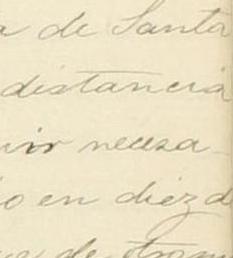 a de Santa
distancia
uir necesa
o en diez d
de